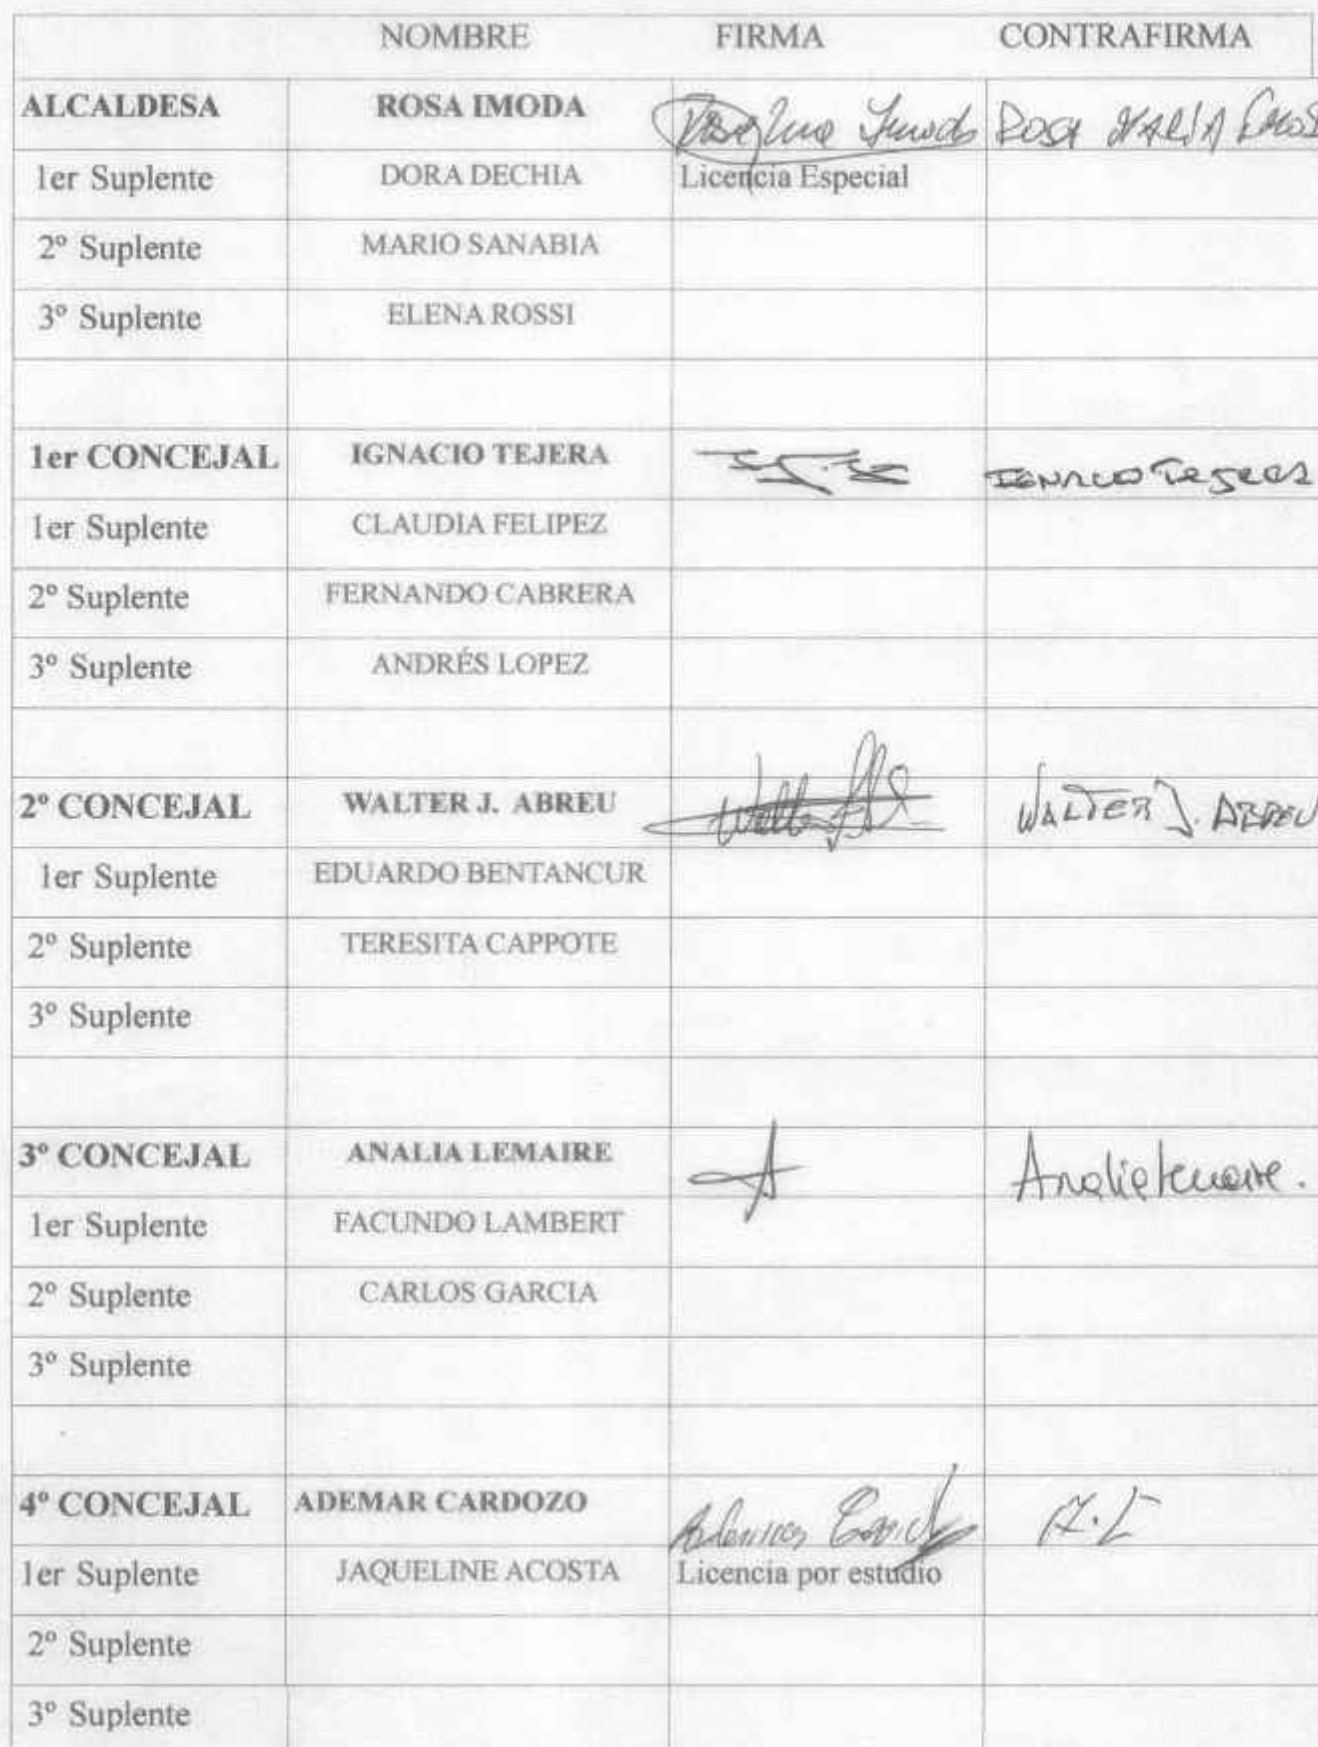 NOMBRE FIRMA CONTRAFIRMA
ALCALDESA ROSA IMODA ROSA MARÍA
1er Suplente DORA DECHIA Licencia Especial
2º Suplente MARIO SANABIA
3º Suplente ELENA ROSSI
1er CONCEJAL IGNACIO TEJERA IGNACIO TEJERA
1er Suplente CLAUDIA FELIPEZ
2º Suplente FERNANDO CABRERA
3º Suplente ANDRÉS LOPEZ
2º CONCEJAL WALTER J. ABREU WALTER J. ABREU
1er Suplente EDUARDO BENTANCUR
2º Suplente TERESITA CAPPOTE
3º Suplente
3º CONCEJAL ANALIA LEMAIRE Analia Lemaire.
1er Suplente FACUNDO LAMBERT
2º Suplente CARLOS GARCIA
3º Suplente
4º CONCEJAL ADEMAR CARDOZO A.C
1er Suplente JAQUELINE ACOSTA Licencia por estudio
2º Suplente
3º Suplente